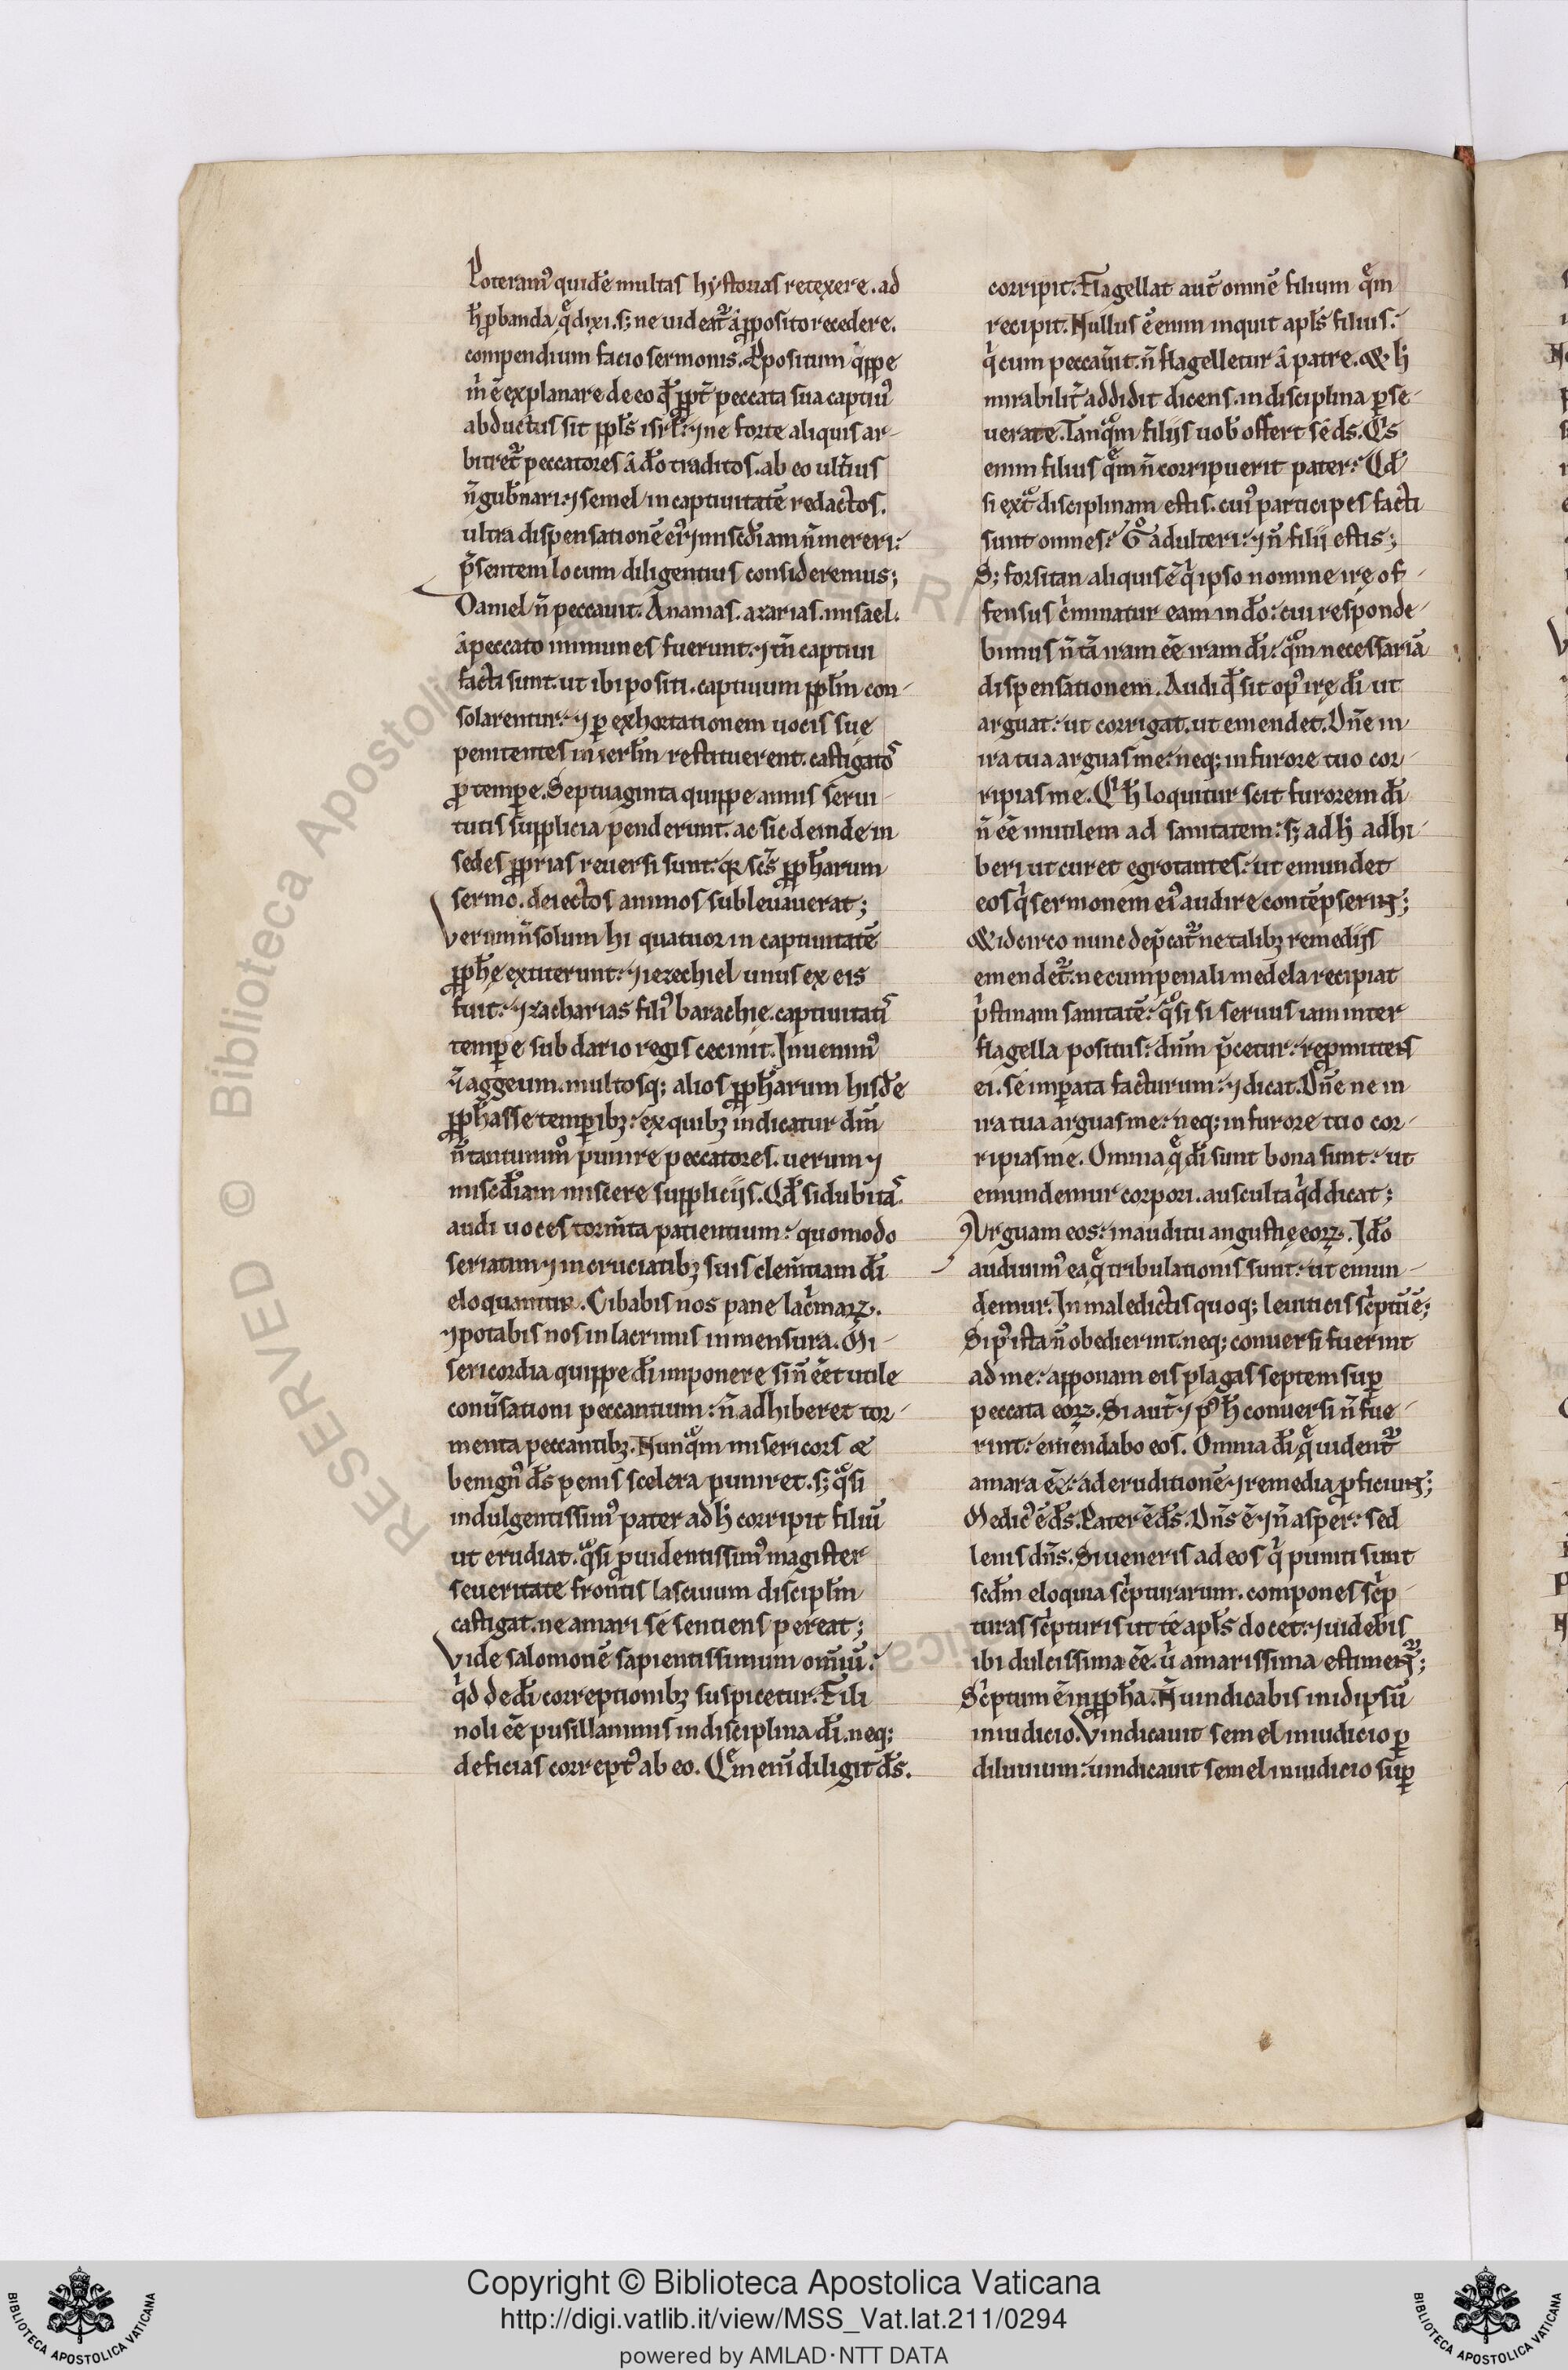 Poteram᷒ quidē multas hystorias retexere. ad
h̄ ꝓbanda q̄ dixi. s; ne uideat᷒ a ꝓposito recedere.
compendium facio sermonis. Ꝓpositum q̍ppe
m̍ ē explanare de eo qđ ꝓpt̄ peccata sua captiu᷒
abductus sit ppl̄s isrl̄: ⁊ ne forte aliquis ar-
bitret᷒ peccatores a dō traditos. ab eo ult̄ius
n̄ gub̄nari: ⁊ semel in captiuitatē redactos.
ultra dispensationē ei᷒ ⁊ misc̄diam n̄ mereri:
p̄sentem locum diligentius consideremus;
Daniel n̄ peccauit. Ananias. azarias. misael.
a peccato immunes fuerunt: ⁊ tn̄ captiui
facti sunt. ut ibi positi. captiuum ppl̄m con-
solarentur: ⁊ ꝑ exhortationem uocis suę
penitentes in ierl̄m restituerent. castigatos
ꝓ tempe. Septuaginta quippe annis serui-
tutis supplicia penderunt. ac sic deinde in
sedes ꝓprias reuersi sunt: qr sc̄s ꝓph̄arum
sermo. deiectos animos subleuauerat;
Verum n̄ solum hi quatuor in captiuitatē
ꝓph̄ę extiterunt: ⁊ iezechiel unus ex eis
fuit: ⁊ zacharias fili᷒ barachię. captiuitatis
tempe sub dario regis cecinit. Inuenim᷒
⁊ aggeum. multosq; alios ꝓph̄arum hisdē
ꝓph̄asse tempibꝫ: ex quibꝫ indicatur dn̄m
n̄ tantum̊m̊ punire peccatores. uerum ⁊
misc̄diam miscere suppliciis. Qđ si dubitas.
audi uoces torm̄ta patientium: quomodo
seriatim ⁊ in cruciatibꝫ suis clem̄tiam dī
eloquantur. Cibabis nos pane lac̍maꝝ.
⁊ potabis nos in lacrimis in mensura. Mi-
sericordia quippe dī imponere si n̄ eēt utile
conūsationi peccantium: n̄ adhiberet tor-
menta peccantibꝫ. Nunqͣm misericors &
benign᷒ ds̄ penis scelera puniret. s; qͣsi
indulgentissim᷒ pater ad h̄ corripit filiū
ut erudiat. qͣsi ꝓuidentissim᷒ magister
seueritate frontis lasciuum discipl̄m
castigat. ne amari se sentiens pereat;
Vide salomonē sapientissimum omniū:
q̍d de dī correptionibꝫ suspicetur. Fili
noli eē pusillanimis in disciplina dī. neq;
deficias corrept᷒ ab eo. Quem eni diligit ds̄.
corripit. Flagellat aut̄ omnē filium quem
recipit. Nullus ē enim inquit apl̄s filius:
q̍ cum peccauit. n̄ flagelletur a patre. & h̄
mirabilit̄ addidit dicens. in disciplina ꝑse-
uerate. Tanqͣm filiis uob̄ offert se ds̄. Q̍s
enim filius quem n̄ corripuerit pater: Qđ
si extͣ disciplinam estis. cui᷒ participes facti
sunt omnes: g̊ adulteri: ⁊ n̄ filii estis;
S; forsitan aliquis ē q̍ ipso nomine irę of-
fensus c̍minatur eam in dō: cui responde-
bimus n̄ tā iram eē iram dī: qͣm necessariā
dispensationem. Audi qđ sit op᷒ irę dī ut
arguat: ut corrigat. ut emendet. Dn̄e in
ira tua arguas me: neq; in furore tuo cor-
ripias me. Q̍ h̄ loquitur scit furorem dī
n̄ eē inutilem ad sanitatem: s; ad h̄ adhi-
beri ut curet egrotantes: ut emundet
eos q̍ sermonem ei᷒ audire contēpserint;
& idcirco nunc dep̄cat᷒ ne talibꝫ remediis
emendet᷒. ne cum penali medela recipiat
p̍stinam sanitatē: qͣsi si seruus iam inter
flagella positus: dn̄m p̄cetur: repmittens
ei. se impata facturum: ⁊ dicat. Dn̄e ne in
ira tua arguas me: neq; in furore tuo cor-
ripias me. Omnia q̄ dī sunt bona sunt: ut
emundemur corpori. ausculta q̍d dicat;
Arguam eos: in auditu angustię eoꝝ. Idō
audiuim᷒ ea q̄ tribulationis sunt: ut emun-
demur. In maledictis quoq; leuiticis sc̍ptū ē;
Si p᷒ ista n̄ obedierint. neq; conuersi fuerint
ad me: apponam eis plagas septem suꝑ
peccata eoꝝ. Si aut̄ ⁊ p᷒ h̄ conuersi n̄ fue-
rint: emendabo eos. Omnia dī q̄ uident᷒
amara eē: ad eruditionē ⁊ remedia ꝓficiunt;
Medic᷒ ē ds̄. Pater ē ds̄. Dn̄s ē ⁊ n̄ asper: sed
lenis dn̄s. Si ueneris ad eos q̍ puniti sunt
scd̄m eloquia sc̍pturarum. compones sc̍p-
turas sc̍pturis ut te apl̄s docet: ⁊ uidebis
ibi dulcissima eē. ū amarissima estiment᷒;
Sc̍ptum ē in ꝓph̄a. N̄ uindicabis in idipsū
in iudicio. Vindicauit semel in iudicio ꝑ
diluuium: uindicauit semel in iudicio suꝑ
Copyright © Biblioteca Apostolica Vaticana
http://digi.vatlib.it/view/MSS_Vat.lat.211/0294
powered by AMLAD·NTT DATA